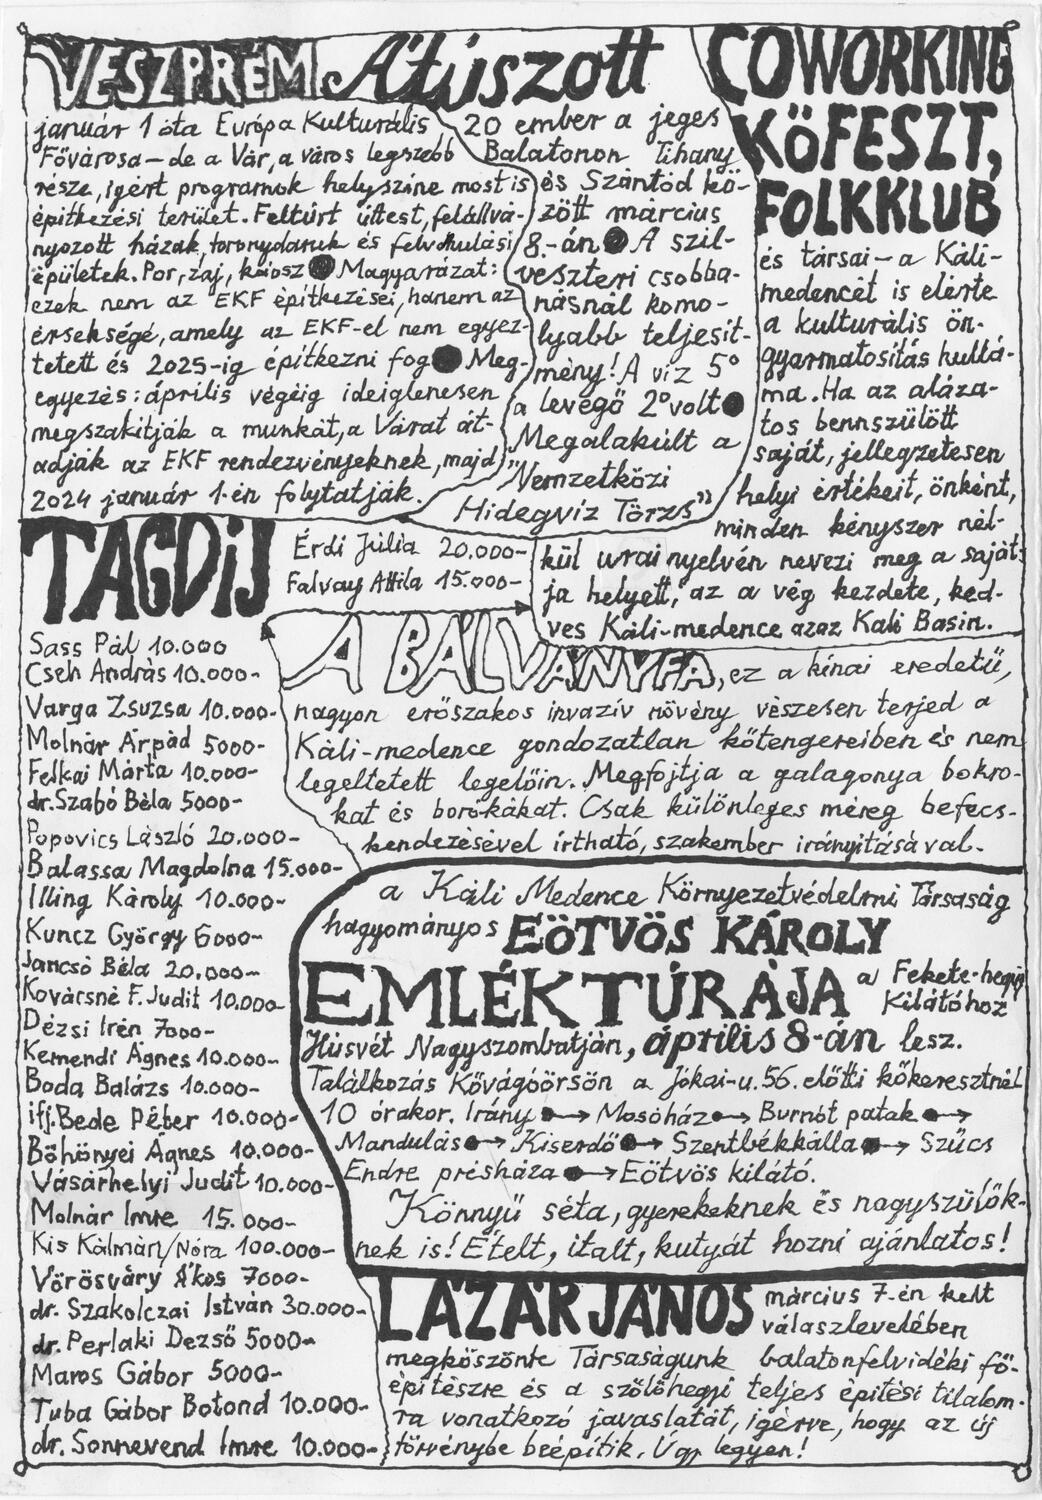 VESZPRÉM
január 1 óta Európa Kulturális
Fővárosa – de a Vár, a város legszebb
része, ígért programok helyszíne most is
építkezési terület. Feltúrt úttest, felállvá-
nyozott házak, toronydaruk és felvonulási
épületek. Por, zaj, káosz ● Magyarázat:
ezek nem az EKF építkezései, hanem az
érsekségé, amely az EKF-el nem egyez-
tetett és 2025-ig építkezni fog ● Meg-
egyezés: április végéig ideiglenesen
megszakítják a munkát, a Várat át-
adják az EKF rendezvényeknek, majd
2024 január 1-én folytatják.
Átúszott
20 ember a jeges
Balatonon Tihany
és Szántód kö-
zött március
8.-án ● A szil-
veszteri csobba-
násnál komo-
lyabb teljesít-
mény! A víz 5°
a levegő 2° volt ●
Megalakult a
„Nemzetközi
Hidegvíz Törzs”
COWORKING
KŐFESZT,
FOLKKLUB
és társai – a Káli-
medencét is elérte
a kulturális ön-
gyarmatosítás hullá-
ma. Ha az aláza-
tos bennszülött
saját, jellegzetesen
helyi értékeit, önként,
minden kényszer nél-
kül urai nyelvén nevezi meg a saját-
ja helyett, az a vég kezdete, ked-
ves Káli-medence azaz Kali Basin.
TAGDÍJ
Érdi Júlia 20.000-
Falvay Attila 15.000-
Sass Pál 10.000
Cseh András 10.000-
Varga Zsuzsa 10.000-
Molnár Árpád 5000-
Felkai Márta 10.000-
dr. Szabó Béla 5000-
Popovics László 20.000-
Balassa Magdolna 15.000-
Illing Károly 10.000-
Kuncz György 6000-
Jancsó Béla 20.000-
Kovácsné F. Judit 10.000-
Dézsi Irén 7000-
Kemendi Ágnes 10.000-
Boda Balázs 10.000-
ifj. Bede Péter 10.000-
Böhönyei Ágnes 10.000-
Vásárhelyi Judit 10.000-
Molnár Imre 15.000-
Kis Kálmán/Nóra 100.000-
Vörösváry Ákos 7000-
dr. Szakolczai István 30.000-
dr. Perlaki Dezső 5000-
Maros Gábor 5000-
Tuba Gábor Botond 10.000-
dr. Sonnevend Imre 10.000-
A BÁLVÁNYFA, ez a kínai eredetű,
nagyon erőszakos invazív növény vészesen terjed a
Káli-medence gondozatlan kőtengereiben és nem
legeltetett legelőin. Megfojtja a galagonya bokro-
kat és borókákat. Csak különleges méreg befecs-
kendezésével írtható, szakember irányításával.
a Káli Medence Környezetvédelmi Társaság
hagyományos EÖTVÖS KÁROLY
EMLÉKTÚRÁJA a Fekete-hegyi
Kilátóhoz
Húsvét Nagyszombatján, április 8-án lesz.
Találkozás Kővágóörsön a Jókai-u. 56. előtti kőkeresztnél
10 órakor. Irány ●→ Mosóház ●→ Burnót patak ●→
Mandulás ●→ Kiserdő ●→ Szentbékkálla ●→ Szűcs
Endre présháza ●→ Eötvös kilátó.
Könnyű séta, gyerekeknek és nagyszülők-
nek is! Ételt, italt, kutyát hozni ajánlatos!
LÁZÁR JÁNOS március 7-én kelt
válaszlevelében
megköszönte Társaságunk balatonfelvidéki fő-
építészre és a szőlőhegyi teljes építési tilalom-
ra vonatkozó javaslatát, ígérve, hogy az új
törvénybe beépítik. Úgy legyen!